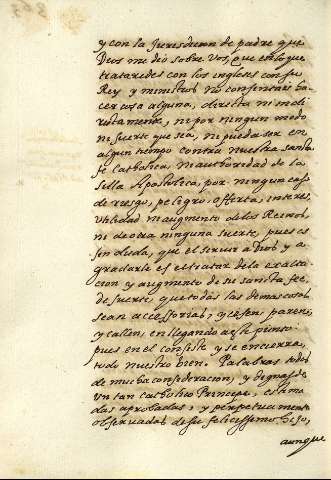 y con la Jurisdicion de padre que
Dios me dio sobre vos, que en lo que
trataredes con los ingleses con su
Rey y ministros no consentais ha-
cer cosa alguna, directa ni indi-
rectamente, ni por ningun modo
ni suerte que sea, ni pueda ser en
algun tiempo contra nuestra santa
fe catholica, ni authoridad de la
silla Apostolica, por ningun caso
de riesgo, peligro, offerta, interes
utilidad ni augmento de los Reinos,
ni de otra ninguna suerte, pues es
sin duda, que el servir a Dios y a-
gradarle es el tratar de la exalta-
cion y augmento de su sancta fee,
de suerte, que todas las demas cosas
sean accessorias, y cesen, paren,
y callen, en llegando a este punto
pues en el consiste y se encierra,
todo nuestro bien. Palabras todas
de mucha consideracion, y dignas de
un tan catholico Principe, estima
das aprobadas, y perpetuamente
observadas de su felicissimo hijo,
aunque